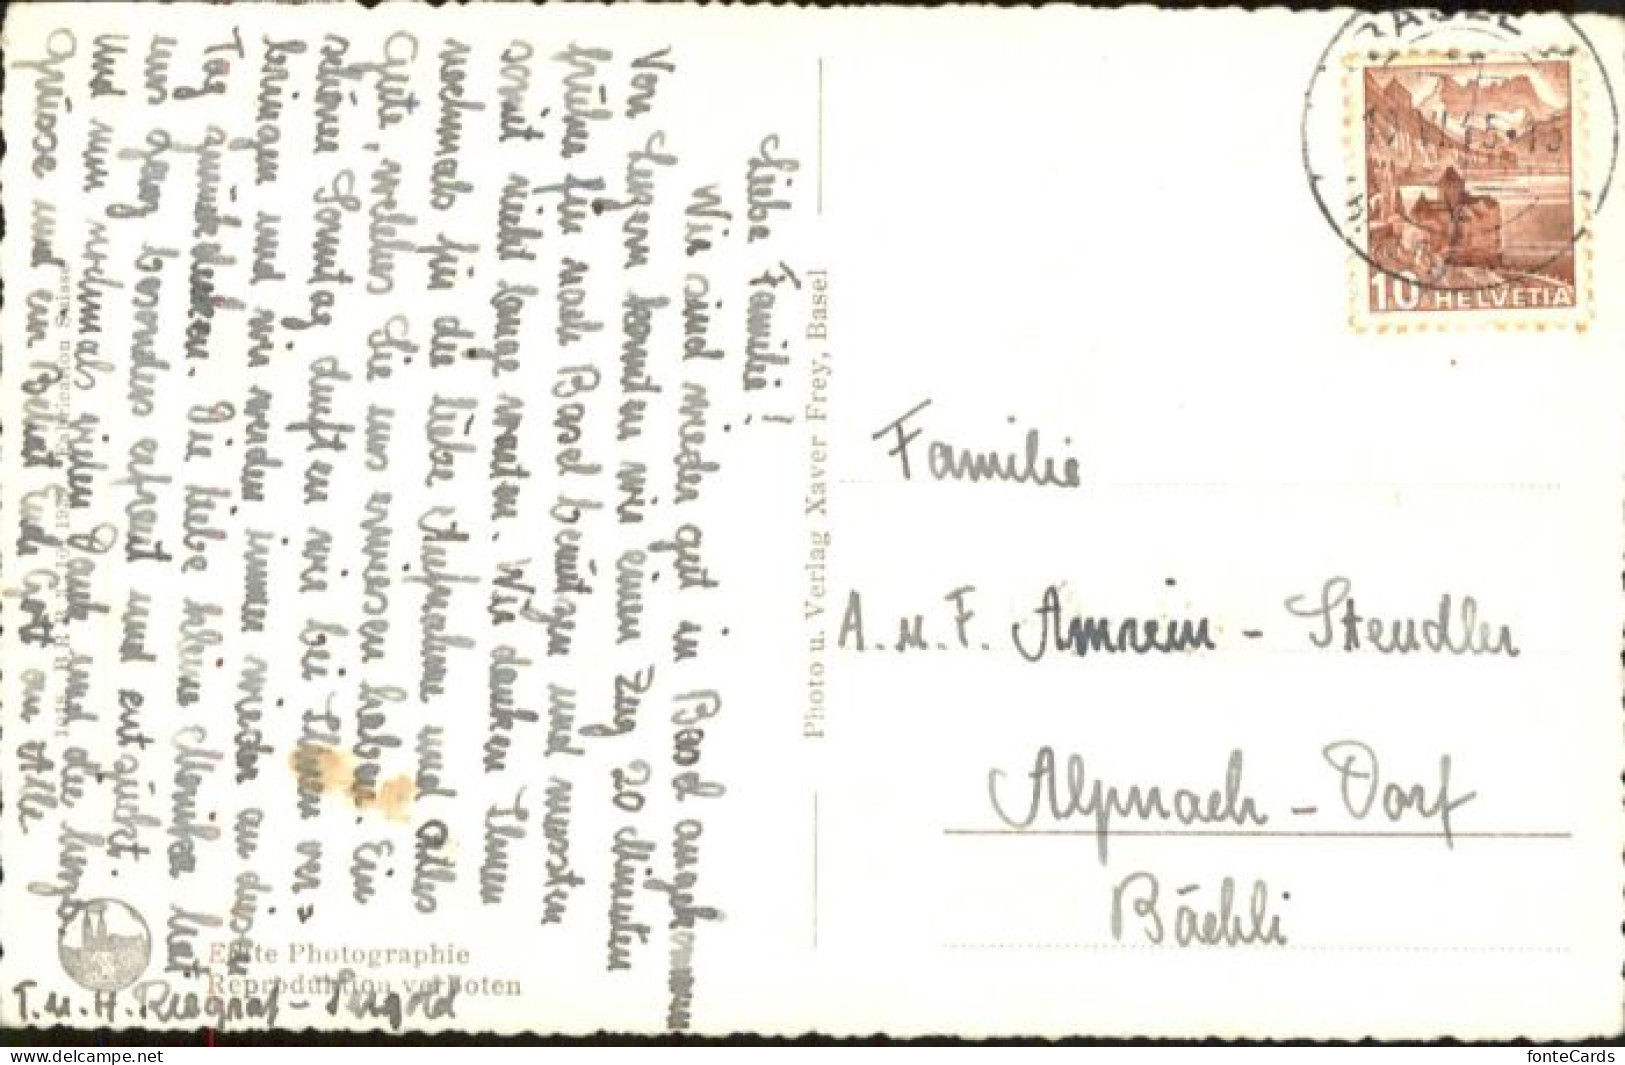 Liebe Familie!
Wir sind wieder gut in Basel angekommen
Von Luzern konnten wir einen Zug 20 Minuten
früher für nach Basel benützen und mussten
somit nicht lange warten. Wir danken Ihnen
nochmals für die liebe Aufnahme und alles
Gute, welches Sie uns erwiesen haben. Ein
schöner Sonntag durften wir bei Ihnen ver=
bringen und wir werden immer wieder an diesen
Tag zurückdenken. Die liebe kleine Monika hat
uns ganz besonders erfreut und entzückt.
Und nun nochmals vielen Dank und die herzl.
Grüsse und ein Behüt Euch Gott an Alle
T. u. H.
Echte Photographie
Reproduktion verboten
Photo u. Verlag Xaver Frey, Basel
BASEL
10 HELVETIA
Familie
A. u. F. Amrein - Stendler
Alpnach - Dorf
Bächli
fonteCards